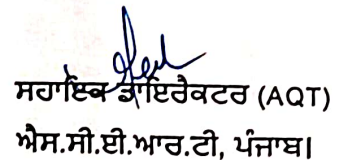 ਸਹਾਇਕ ਡਾਇਰੈਕਟਰ (AQT)
ਐਸ.ਸੀ.ਈ.ਆਰ.ਟੀ, ਪੰਜਾਬ।